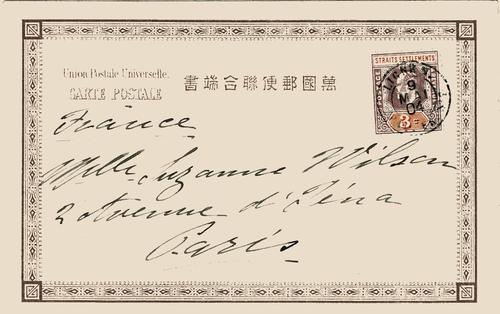 Union Postale Universelle.
CARTE POSTALE
書端合聯便郵國萬
STRAITS SETTLEMENTS
9
04
France
Mlle Suzanne Wilson
2 Avenue d'Iéna
Paris